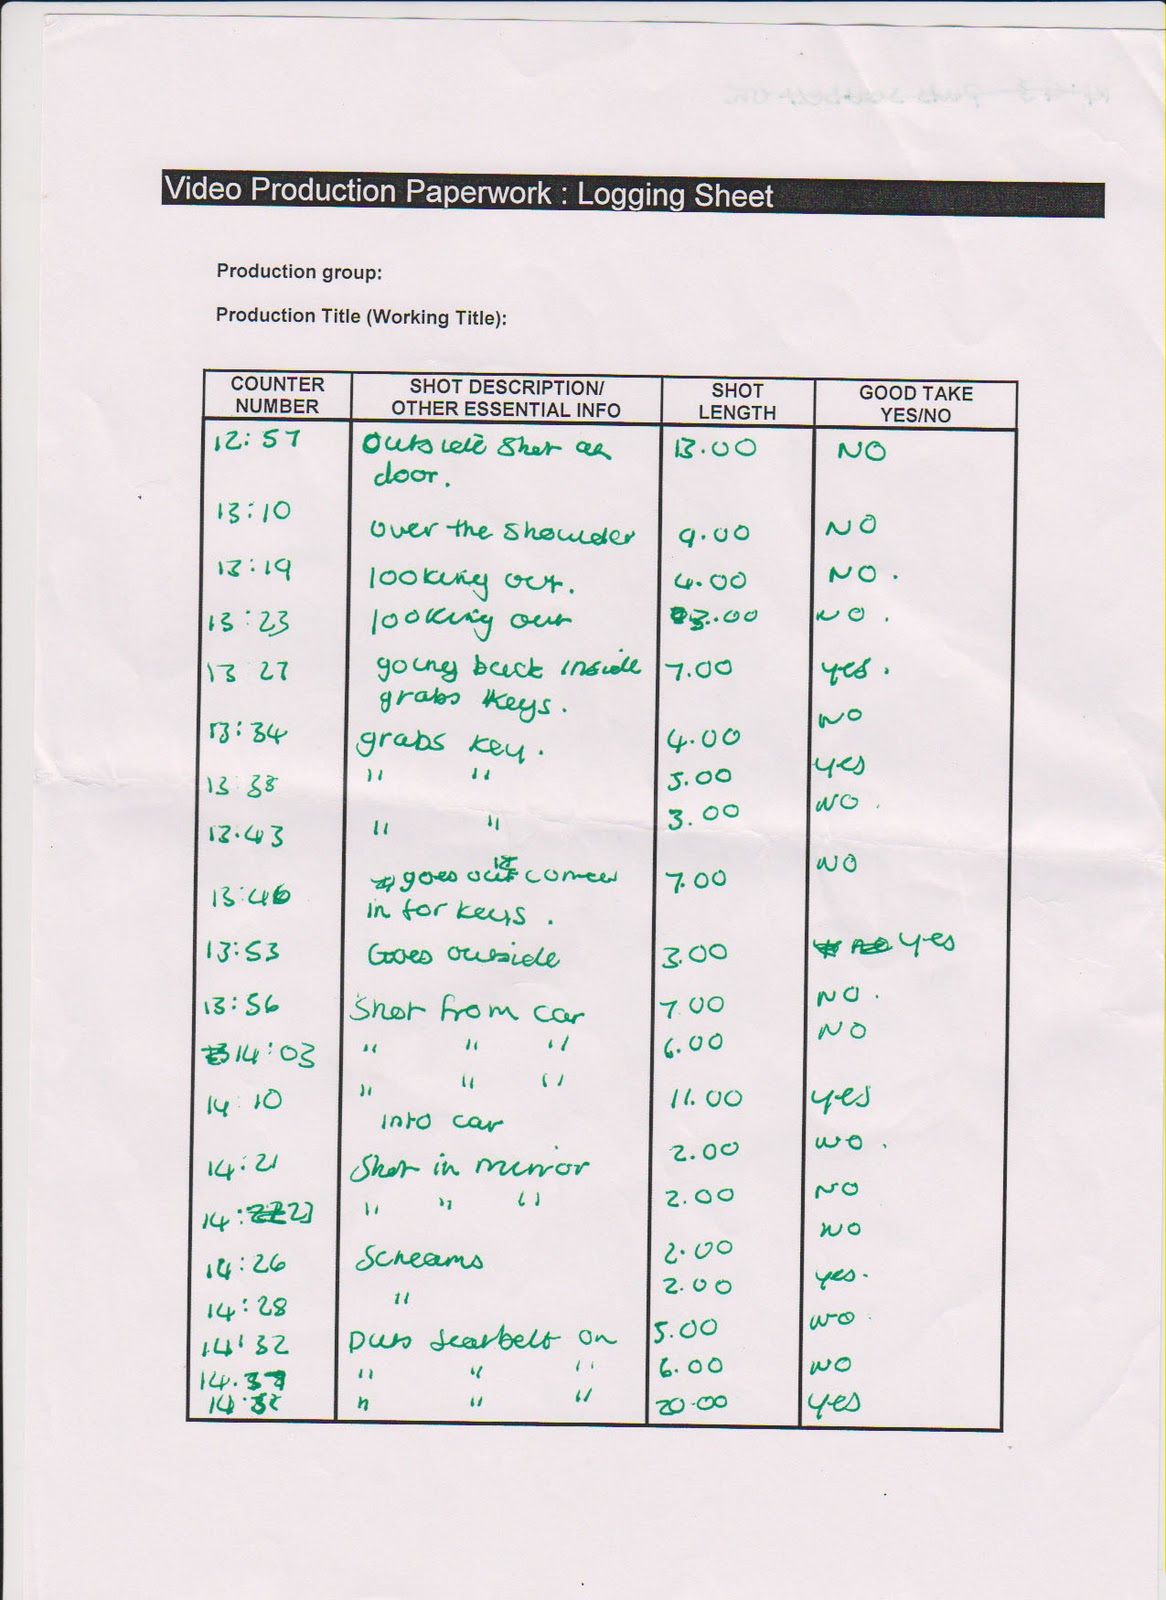 Video Production Paperwork : Logging Sheet
Production group:
Production Title (Working Title):
COUNTER NUMBER SHOT DESCRIPTION/ OTHER ESSENTIAL INFO SHOT LENGTH GOOD TAKE YES/NO
12:57 Outside shot door. 13.00 NO
13:10 over the shoulder 9.00 NO
13:19 looking out. 4.00 NO.
13:23 looking out 3.00 NO.
13 27 going back inside grabs keys. 7.00 yes.
13:34 grabs key. 4.00 NO
13:38 " " 5.00 yes
13.43 " " 3.00 NO.
13:46 goes out comes in for keys. 7.00 NO
13:53 Goes outside 3.00 yes
13:56 Shot from car 7.00 NO.
14:03 " " " 6.00 NO
14:10 " " " into car 11.00 yes
14:21 Shot in mirror 2.00 NO.
14:23 " " " 2.00 NO
14:26 Screams 2.00 NO
14:28 " 2.00 yes.
14:32 Puts seatbelt on 5.00 NO.
14.37 " " " 6.00 NO
14: " " " 20.00 yes